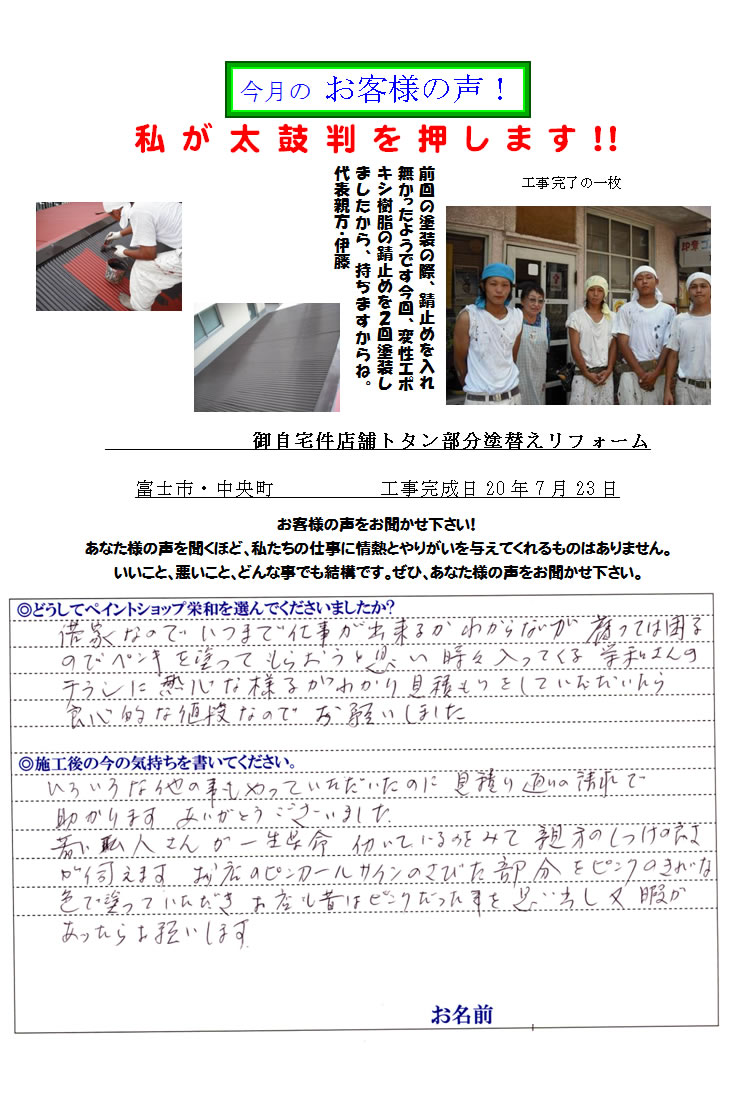 今月の お客様の声！
私が太鼓判を押します!!
工事完了の一枚
前回の塗装の際、錆止めを入れ
無かったようです今回、変性エポ
キシ樹脂の錆止めを２回塗装し
ましたから、持ちますからね。
代表親方・伊藤
御自宅件店舗トタン部分塗替えリフォーム
富士市・中央町 工事完成日20年7月23日
お客様の声をお聞かせ下さい!
あなた様の声を聞くほど、私たちの仕事に情熱とやりがいを与えてくれるものはありません。
いいこと、悪いこと、どんな事でも結構です。ぜひ、あなた様の声をお聞かせ下さい。
◎どうしてペイントショップ栄和を選んでくださいましたか?
借家なので いつまで仕事が出来るか わからないが 腐っては困る
のでペンキを塗って もらおうと思い 時々入ってくる 栄和さんの
チラシに 熱心な様子がわかり 見積もりをしていただいたら
良心的な値段なので お願いしました
◎施工後の今の気持ちを書いてください。
いろいろな他の事もやっていただいたのに 見積り通りの請求で
助かります ありがとうございました
若い職人さんが一生懸命 働いているのをみて 親方のしつけの良さ
が伺えます お店のピンカールサインのさびた部分をピンクのきれいな
色で塗っていただき お店も昔はピンクだった事を思い出し 又 暇が
あったらお願いします
お名前